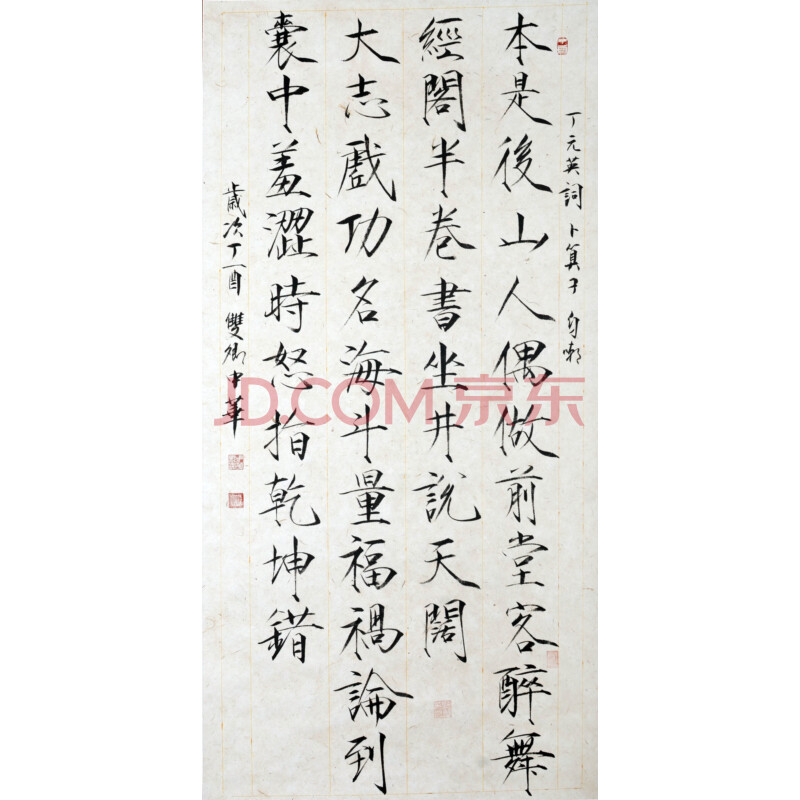 丁元英詞卜算子自嘲
本是後山人偶做前堂客醉舞
經閣半卷書坐井説天闊
大志戲功名海斗量福禍論到
囊中羞澀時怒指乾坤錯
歲次丁酉雙鄉中華
JD.COM京东